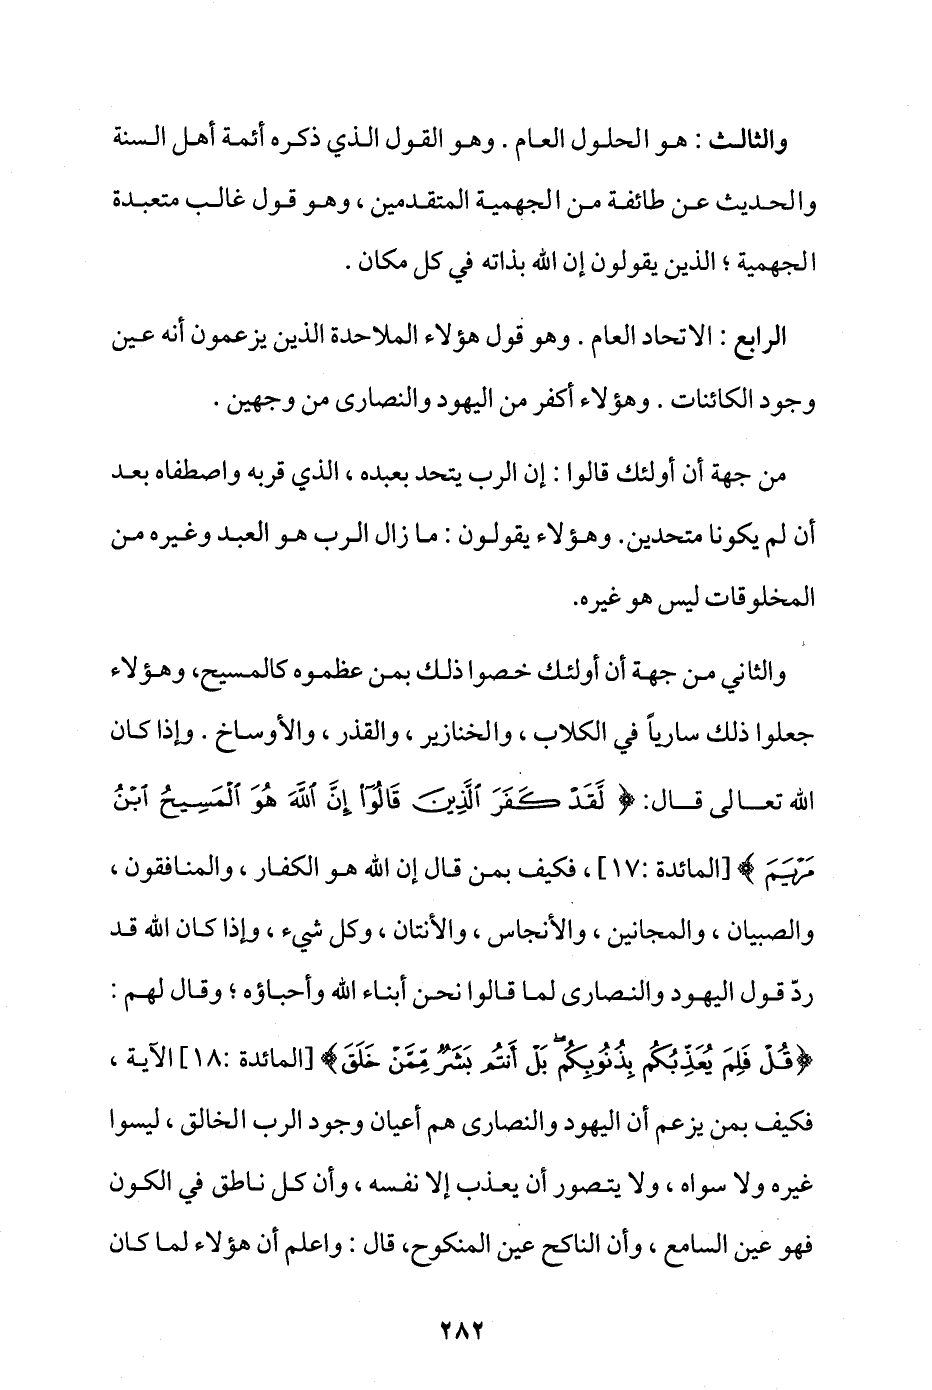 والثالث : هو الحلول العام . وهو القول الذي ذكره أئمة أهل السنة
والحديث عن طائفة من الجهمية المتقدمين ، وهو قول غالب متعبدة
الجهمية ؛ الذين يقولون إن الله بذاته في كل مكان .
الرابع : الاتحاد العام . وهو قول هؤلاء الملاحدة الذين يزعمون أنه عين
وجود الكائنات . وهؤلاء أكفر من اليهود والنصارى من وجهين .
من جهة أن أولئك قالوا : إن الرب يتحد بعبده ، الذي قربه واصطفاه بعد
أن لم يكونا متحدين. وهؤلاء يقولون : ما زال الرب هو العبد وغيره من
المخلوقات ليس هو غيره.
والثاني من جهة أن أولئك خصوا ذلك بمن عظموه كالمسيح، وهؤلاء
جعلوا ذلك سارياً في الكلاب ، والخنازير ، والقذر ، والأوساخ . وإذا كان
الله تعالى قال: ﴿ لَّقَدْ كَفَرَ ٱلَّذِينَ قَالُوٓا۟ إِنَّ ٱللَّهَ هُوَ ٱلْمَسِيحُ ٱبْنُ
مَرْيَمَ ﴾ [المائدة :١٧] ، فكيف بمن قال إن الله هو الكفار ، والمنافقون ،
والصبيان ، والمجانين ، والأنجاس ، والأنتان ، وكل شيء ، وإذا كان الله قد
ردّ قول اليهود والنصارى لما قالوا نحن أبناء الله وأحباؤه ؛ وقال لهم :
﴿قُلْ فَلِمَ يُعَذِّبُكُم بِذُنُوبِكُم ۖ بَلْ أَنتُم بَشَرٌ مِّمَّنْ خَلَقَ﴾ [المائدة :١٨] الآية ،
فكيف بمن يزعم أن اليهود والنصارى هم أعيان وجود الرب الخالق ، ليسوا
غيره ولا سواه ، ولا يتصور أن يعذب إلا نفسه ، وأن كل ناطق في الكون
فهو عين السامع ، وأن الناكح عين المنكوح، قال : واعلم أن هؤلاء لما كان
٢٨٢